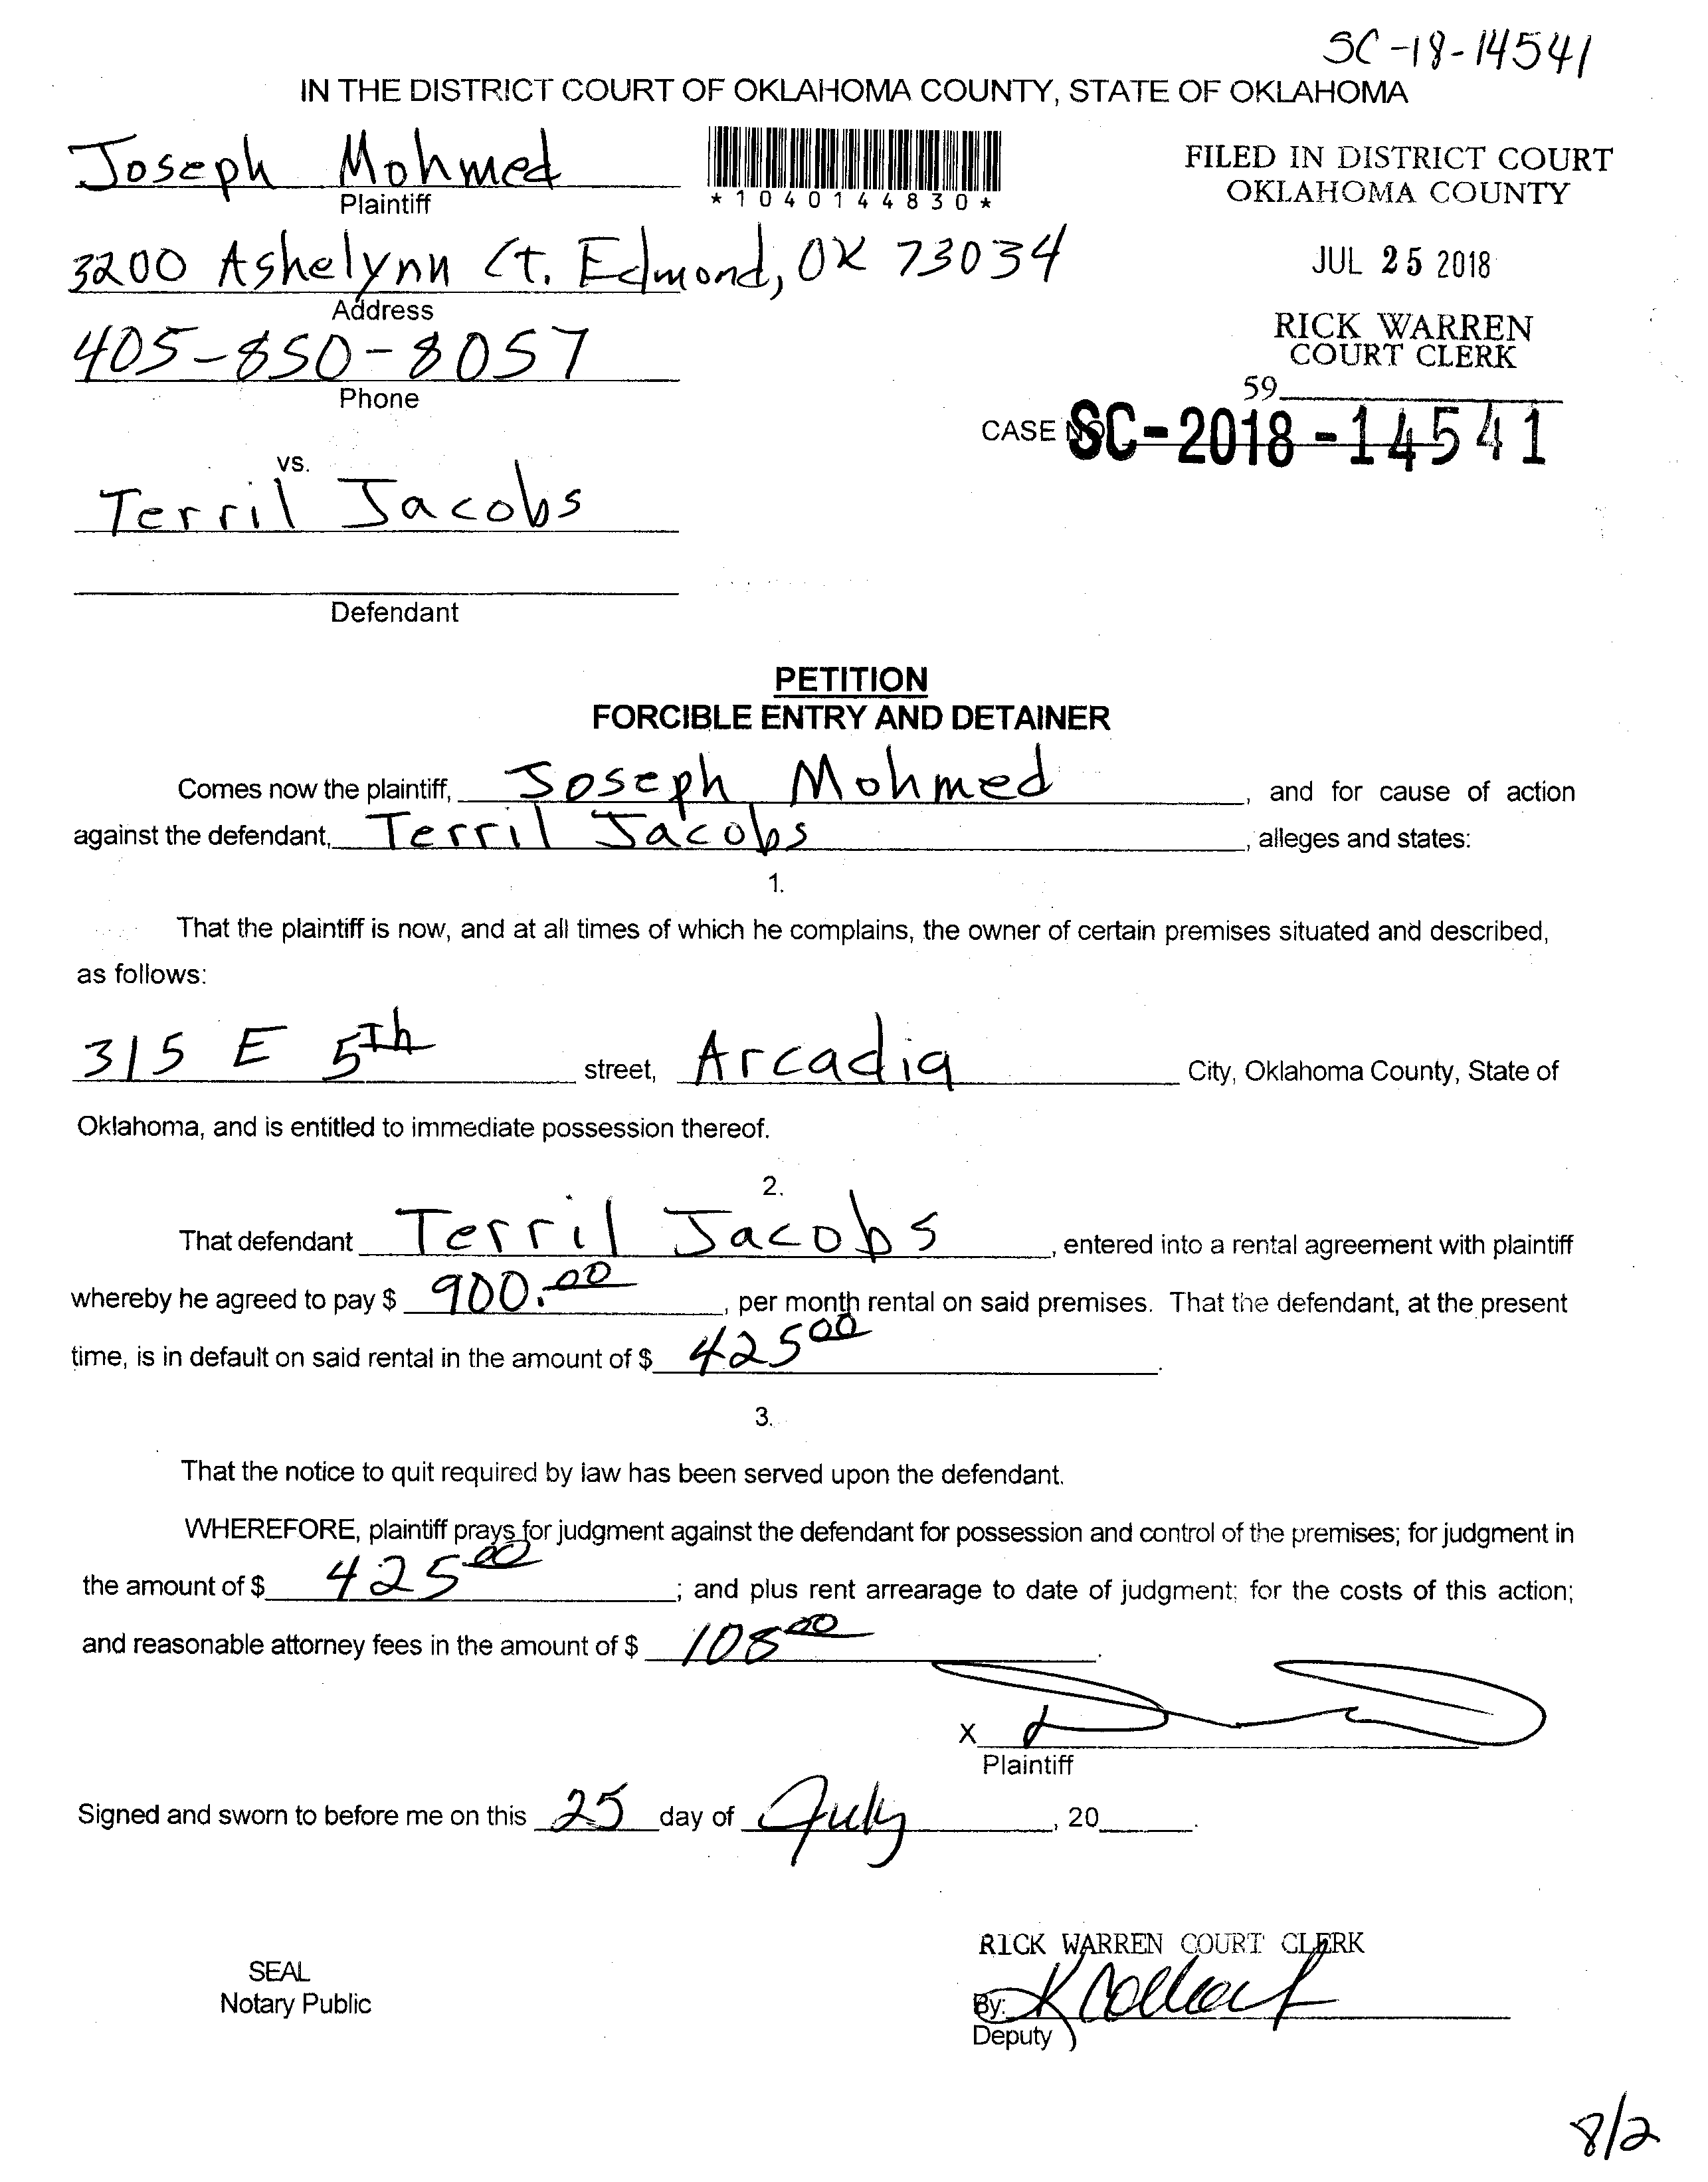 SC-18-14541
IN THE DISTRICT COURT OF OKLAHOMA COUNTY, STATE OF OKLAHOMA
Joseph Mohmed
Plaintiff
*1040144830*
FILED IN DISTRICT COURT
OKLAHOMA COUNTY
3200 Ashelynn Ct. Edmond, OK 73034
Address
JUL 25 2018
405-850-8057
Phone
RICK WARREN
COURT CLERK
59
CASE NO SC-2018-14541
vs.
Terril Jacobs
Defendant
PETITION
FORCIBLE ENTRY AND DETAINER
Comes now the plaintiff, Joseph Mohmed, and for cause of action
against the defendant, Terril Jacobs, alleges and states:
1.
That the plaintiff is now, and at all times of which he complains, the owner of certain premises situated and described,
as follows:
315 E 5th street, Arcadia City, Oklahoma County, State of
Oklahoma, and is entitled to immediate possession thereof.
2.
That defendant Terril Jacobs, entered into a rental agreement with plaintiff
whereby he agreed to pay $ 900.00, per month rental on said premises. That the defendant, at the present
time, is in default on said rental in the amount of $ 425 00.
3.
That the notice to quit required by law has been served upon the defendant.
WHEREFORE, plaintiff prays for judgment against the defendant for possession and control of the premises; for judgment in
the amount of $ 425 00; and plus rent arrearage to date of judgment; for the costs of this action;
and reasonable attorney fees in the amount of $ 108 00.
X
Plaintiff
Signed and sworn to before me on this 25 day of July, 20___.
SEAL
Notary Public
RICK WARREN COURT CLERK
By:
Deputy
8/2